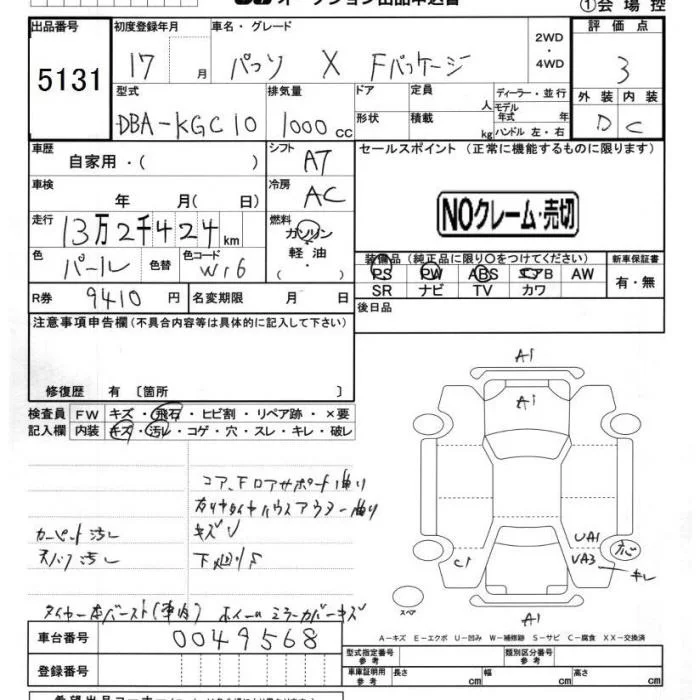 オークション出品申込書
①会場控
出品番号 初度登録年月 車名・グレード 2WD・4WD 評価点
5131 17 月 パッソ X Fパッケージ 3
型式 排気量 ドア 定員 人 ディーラー・並行 外装 内装
DBA-KGC10 1000 cc 形状 積載 kg モデル年式 年 ハンドル 左・右 D C
車歴 自家用・( ) シフト AT セールスポイント (正常に機能するものに限ります)
車検 年 月( 日) 冷房 AC
NOクレーム・売切
走行 13万2千424km 燃料 ガソリン・軽油・( )
色 パール 色替 色コード W16
装備品 (純正品に限り○をつけてください) 新車保証書
PS PW ABS エアB AW 有・無
SR ナビ TV カワ
R券 9410円 名変期限 月 日 後日品
注意事項申告欄(不具合内容等は具体的に記入して下さい)
修復歴 有 〔箇所 〕
検査員 FW キズ・飛石・ヒビ割・リペア跡・×要
記入欄 内装 キズ・汚レ・コゲ・穴・スレ・キレ・破レ
A1
A1
コア、Fロアサポート曲り
右リヤタイヤハウスアウター曲り
カーペット汚レ キズU
天バリ汚レ 下廻りS
UA1
C1 UA3 キレ
タイヤ一本バースト(車内) ホイールミラーカバーキズ
スペア
A1
車台番号 0049568
A-キズ E-エクボ U-凹み W-補修跡 S-サビ C-腐食 XX-交換済
登録番号
型式指定番号 参考 類別区分番号 参考
車庫証明用 参考 長さ cm 幅 cm 高さ cm